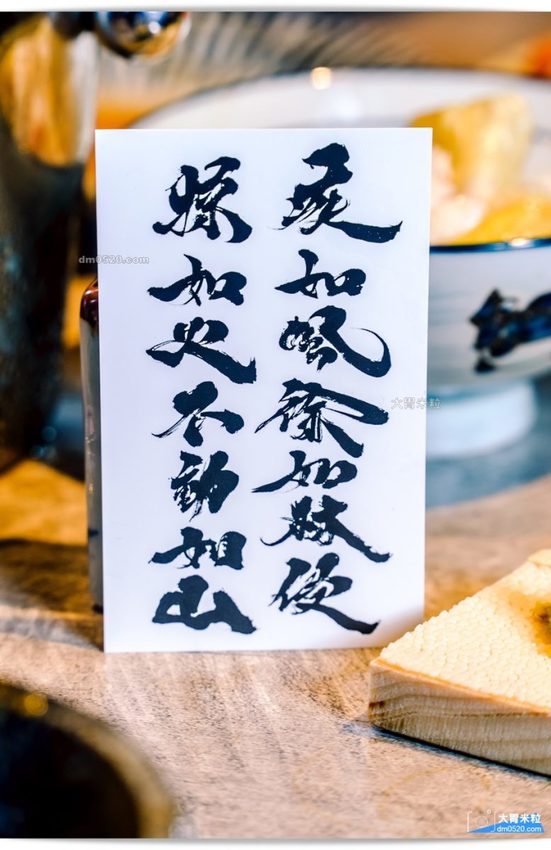 疾如風徐如林侵
掠如火不動如山
dm0520.com
大胃米粒
大胃米粒
dm0520.com